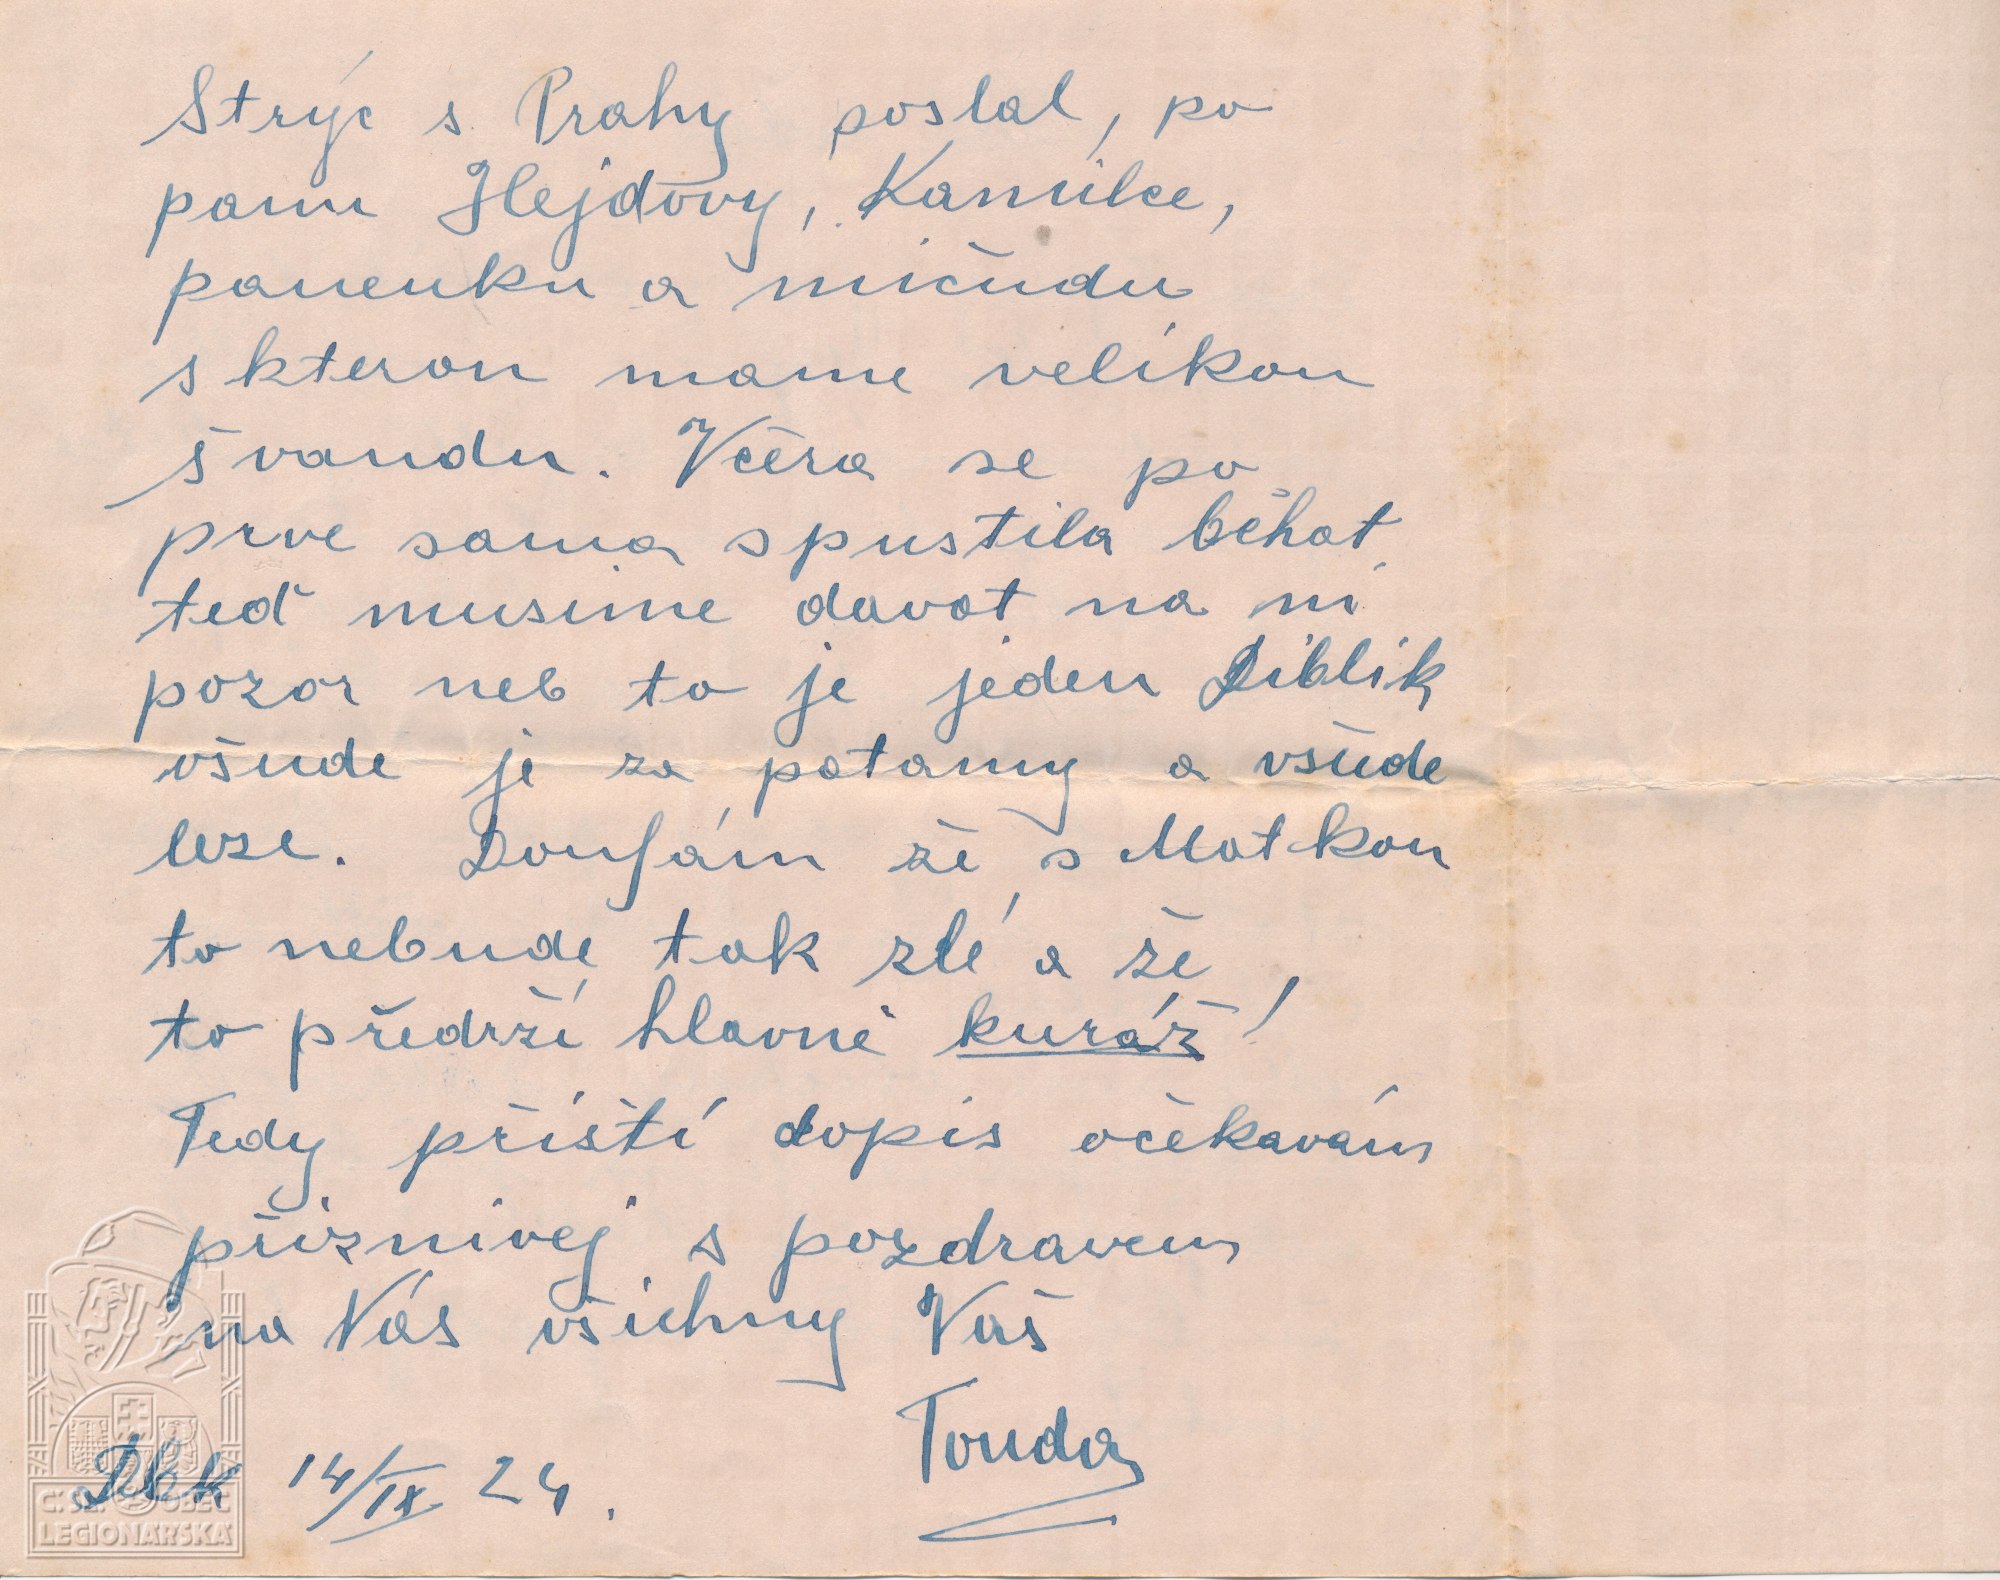 Strýc s Prahy poslal, po
panu Hejdovy, Kamilce,
panenku a mičudu
s kterou mame velikou
švandu. Včera se po
prve sama spustila běhat
teď musime davat na ni
pozor neb to je jeden Diblik
všude je za patamy a všude
leze. Doufám že s Matkou
to nebude tak zlé a že
to předrží hlavně kuráž!
Tedy příští dopis očekavám
přiznivej s pozdravem
na Vás všichny Váš
Touda
14/IX 24.
Č. SL. OBEC
LEGIONÁŘSKÁ